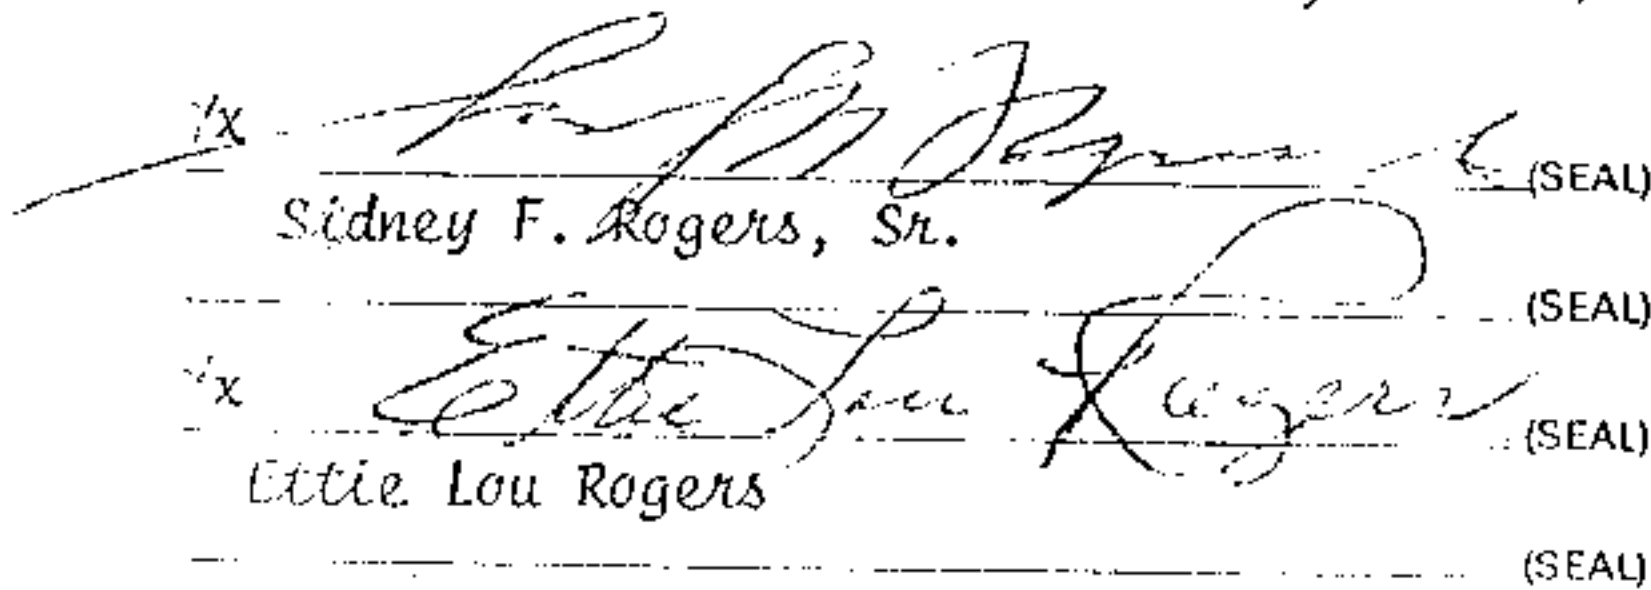 /x (SEAL)
Sidney F. Rogers, Sr.
(SEAL)
/x Ettie Lou Rogers (SEAL)
Ettie Lou Rogers
(SEAL)